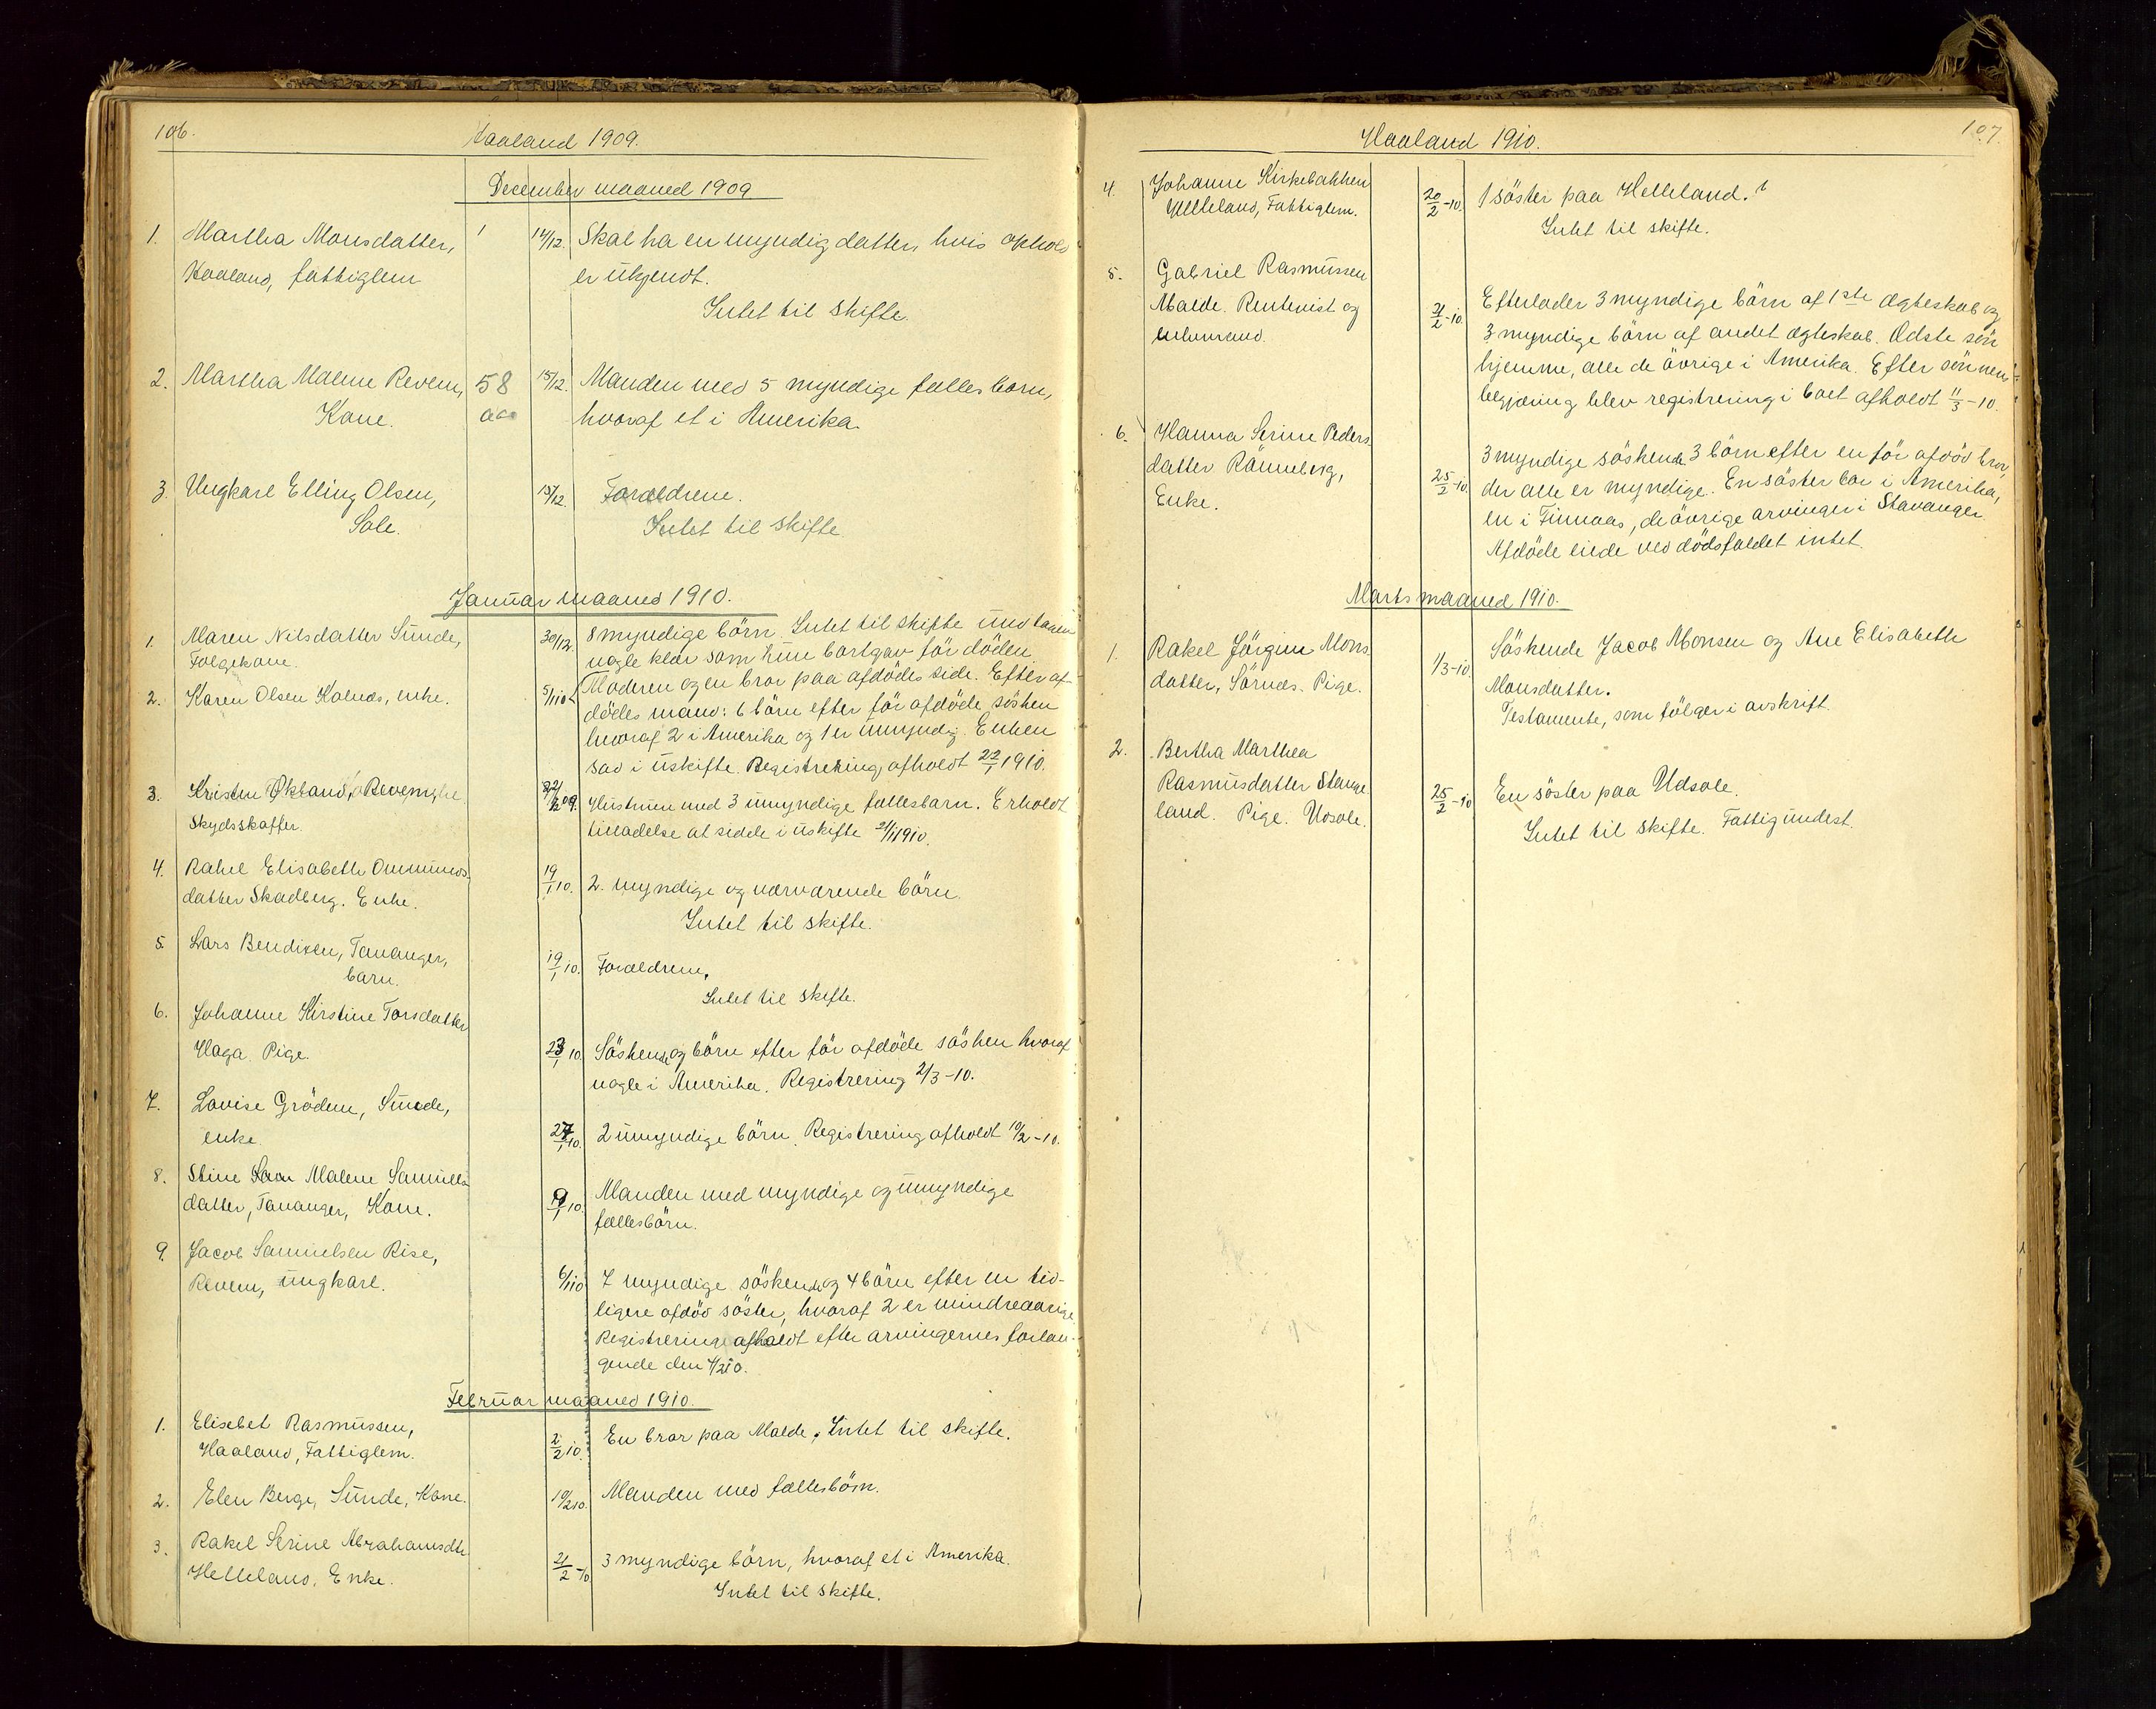 106.
Haaland 1909.
December maaned 1909
1. Martha Monsdatter, 1 14/12. Skal ha en myndig datter, hvis ophold
Haaland, fattiglem er ukjendt.
Intet til skifte.
2. Martha Malene Revem, 58 15/12. Manden med 5 myndige fælles børn,
Kone. hvoraf et i Amerika.
3. Ungkarl Elling Olsen, 15/12. Forældrene.
Sole. Intet til skifte.
Januar maaned 1910.
1. Maren Nilsdatter Sunde, 30/12. 8 myndige börn. Intet til skifte undtagen
Folgekone. nogle klær som hun bortgav för döden
2. Karen Olsen Kolnes, enke. 5/1 10 Moderen og en bror paa afdödes side. Efter af-
dödes mand: 6 börn efter för afdöde sösken
hvoraf 2 i Amerika og 1 er umyndig. Enken
sad i uskifte. Registrering afholdt 22/1 1910.
3. Kristen Økland, Revem, 09. Hustruen med 3 umyndige fællesbarn. Erholdt
Skydsskaffer. tilladelse at sidde i uskifte 21/1 1910.
4. Rakel Elisabeth Ommunds- 19/1 10. 2 myndige og nærværende börn.
datter Skadberg. Enke.
Intet til skifte.
5. Lars Bendixen, Tananger, 19/1 10. Forældrene,
barn.
Intet til skifte.
6. Johanne Kirstine Torsdatter
Haga. Pige. 23/1 10. Söskende og börn efter för afdöde sösken hvoraf
nogle i Amerika. Registrering 2/3-10.
7. Lovise Grödem, Sunde,
enke. 27/1 10. 2 umyndige börn. Registrering afholdt 10/2-10.
8. Stine Malene Samuels
datter, Tananger, Kone. 9/1 10. Manden med myndige og umyndige
fællesbörn.
9. Jacob Samuelsen Rise,
Revem, ungkarl. 6/1 10 7 myndige söskende og 4 börn efter en tid-
ligere afdöd söster, hvoraf 2 er mindreaarige
Registrering afholdt efter arvingernes forlan-
gende den 4/2 10.
Februar maaned 1910.
1. Elisebet Rasmussen,
Haaland, Fattiglem. 2/2 10. En bror paa Malde. Intet til skifte.
2. Elen Berge, Sunde, Kone. 10/2 10. Manden med fællesbörn.
3. Rakel Serine Abrahamsdtr
Helleland, Enke. 21/2-10 3 myndige börn, hvoraf et i Amerika.
Intet til skifte.
107.
Haaland 1910.
4. Johanne Kirkebakken
Helleland, Fattiglem. 20/2-10. 1 söster paa Helleland.
Intet til skifte.
5. Gabriel Rasmussen
Malde. Rentenist og 21/2-10. Efterlader 3 myndige börn af 1ste ægteskab og
enkemand. 3 myndige börn af andet ægteskab. Ældste sön
hjemme, alle de övrige i Amerika. Efter sönnens
begjæring blev registrering i boet afholdt 11/3-10.
6. Hanna Serine Peders
datter Rönneberg, 25/2-10. 3 myndige söskende 3 börn efter en för afdöd bror,
Enke. der alle er myndige. En söster bor i Amerika,
en i Finnaas, de övrige arvinger i Stavanger.
Afdöde eiede ved dödsfaldet intet.
Marts maaned 1910.
1. Rakel Jörgine Mons 1/3-10. Söskende Jacob Monsen og Ane Elisabeth
datter, Sörnes. Pige. Monsdatter.
Testamente, som fölger i avskrift.
2. Bertha Marthea
Rasmusdatter Stange
land. Pige. Udsole. 25/2-10 En söster paa Udsole.
Intet til skifte. Fattigundest.